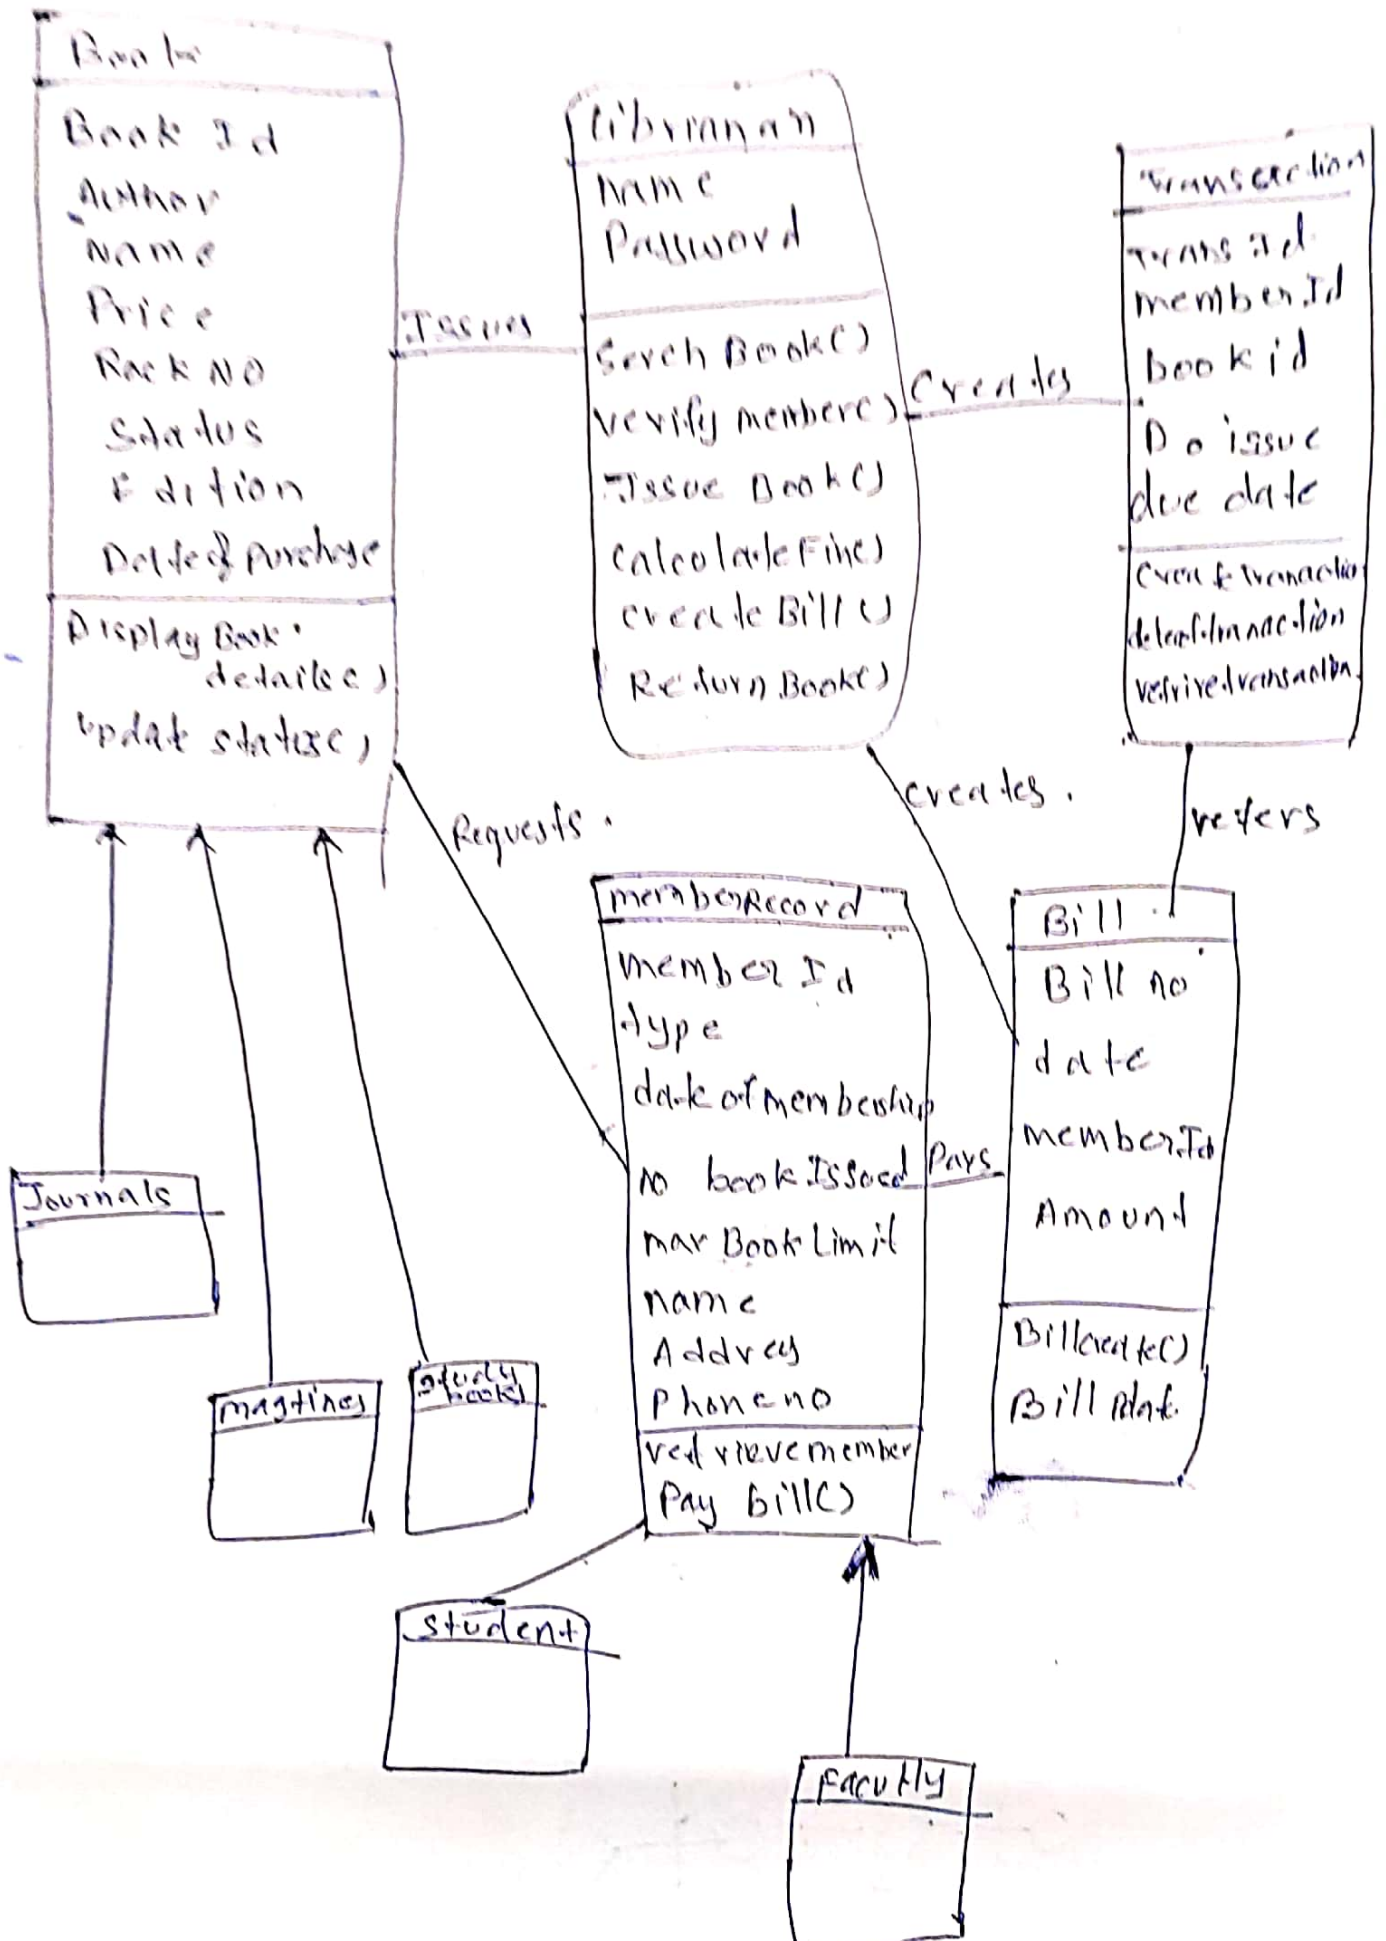 Book
Book Id
Author
Name
Price
Rack NO
Status
Edition
Date of purchase
Display Book
details()
update status()
Issues
Librianan
name
Password
Serch Book()
verify member()
Issue Book()
calculate Fine()
create Bill()
Return Book()
Creates
Transaction
Trans Id
member Id
book id
D o issue
due date
Create Tranaction
delete tranaction
retrive transaction
Requests.
creates.
refers
memberRecord
member Id
type
date of membership
no book Issued
max Book Limit
name
Address
Phone no
retrieve member
Pay bill()
Pays
Bill
Bill no
date
member Id
Amount
Billcreate()
Bill
Journals
magtines
study
books
Student
Facutly